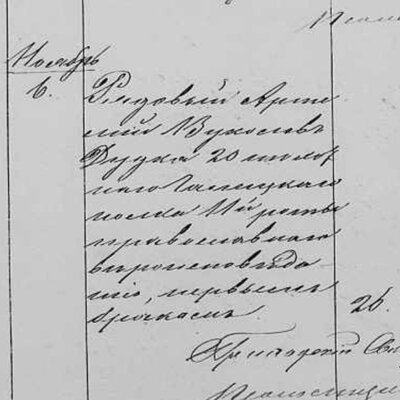 Ноябрь
6.
Рядовый Арте
мий Вуколовъ
Дудка 20 пѣхот
наго Галицкаго
полка 11й роты
православнаго
вѣроисповѣда
нія, первымъ
бракомъ.
26.
Григорій